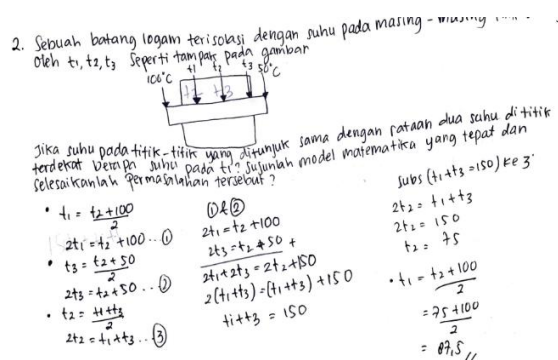 2. Sebuah batang logam terisolasi dengan suhu pada masing-masing
oleh t₁, t₂, t₃ seperti tampak pada gambar
100°C t₁ t₂ t₃ 50°C
Jika suhu pada titik-titik yang ditunjuk sama dengan rataan dua suhu di titik
terdekat berapa suhu pada t₁? susunlah model matematika yang tepat dan
selesaikanlah permasalahan tersebut?
• t₁ = t₂+100 / 2
2t₁ = t₂ + 100 ... ①
• t₃ = t₂ + 50 / 2
2t₃ = t₂ + 50 ... ②
• t₂ = t₁+t₃ / 2
2t₂ = t₁ + t₃ ... ③
① & ②
2t₁ = t₂ + 100
2t₃ = t₂ + 50 +
2t₁ + 2t₃ = 2t₂ + 150
2(t₁+t₃) = (t₁+t₃) + 150
t₁ + t₃ = 150
subs (t₁+t₃ = 150) ke 3
2t₂ = t₁ + t₃
2t₂ = 150
t₂ = 75
• t₁ = t₂ + 100 / 2
= 75 + 100 / 2
= 87,5 //